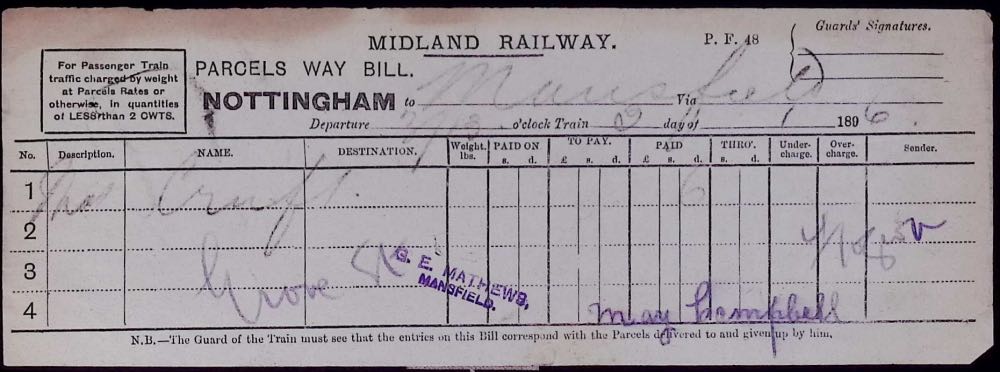 MIDLAND RAILWAY.
P. F. 48
Guards' Signatures.
For Passenger Train
traffic charged by weight
at Parcels Rates or
otherwise, in quantities
of LESS than 2 CWTS.
PARCELS WAY BILL.
NOTTINGHAM to Mansfield Via
Departure o'clock Train day of 1 1896.
No. Description. NAME. DESTINATION. Weight. lbs. PAID ON s. d. TO PAY. £ s. d. PAID £ s. d. THRO'. s. d. Under-charge. Over-charge. Sender.
1 6
2
3 Grove
G. E. MATHEWS,
MANSFIELD.
4 May Campbell
N.B.—The Guard of the Train must see that the entries on this Bill correspond with the Parcels delivered to and given up by him.